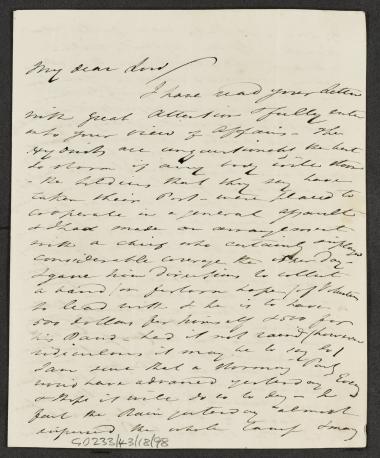 My dear Lord
I have read your letter
with great attention & fully enter
into your view of affairs - The
are unquestionably the best
to storm if any body will
- the soldiers that they say have
taken their Post - were placed to
cooperate in a general assault
& I had made an arrangement
with a chief who certainly employed
considerable courage the other day -
I gave him directions to collect
a band / or forlorn hope / of Volunteers
to lead with & he is to have
500 dollars for himself & 500 for
his Band - had it not rained / however
ridiculous it may be to say so /
I am sure that a Storming Party
would have advanced yesterday Even
& I hope it will do so to day - In
fact the Rain yesterday almost
the whole camp & may
GD233/43/18/98